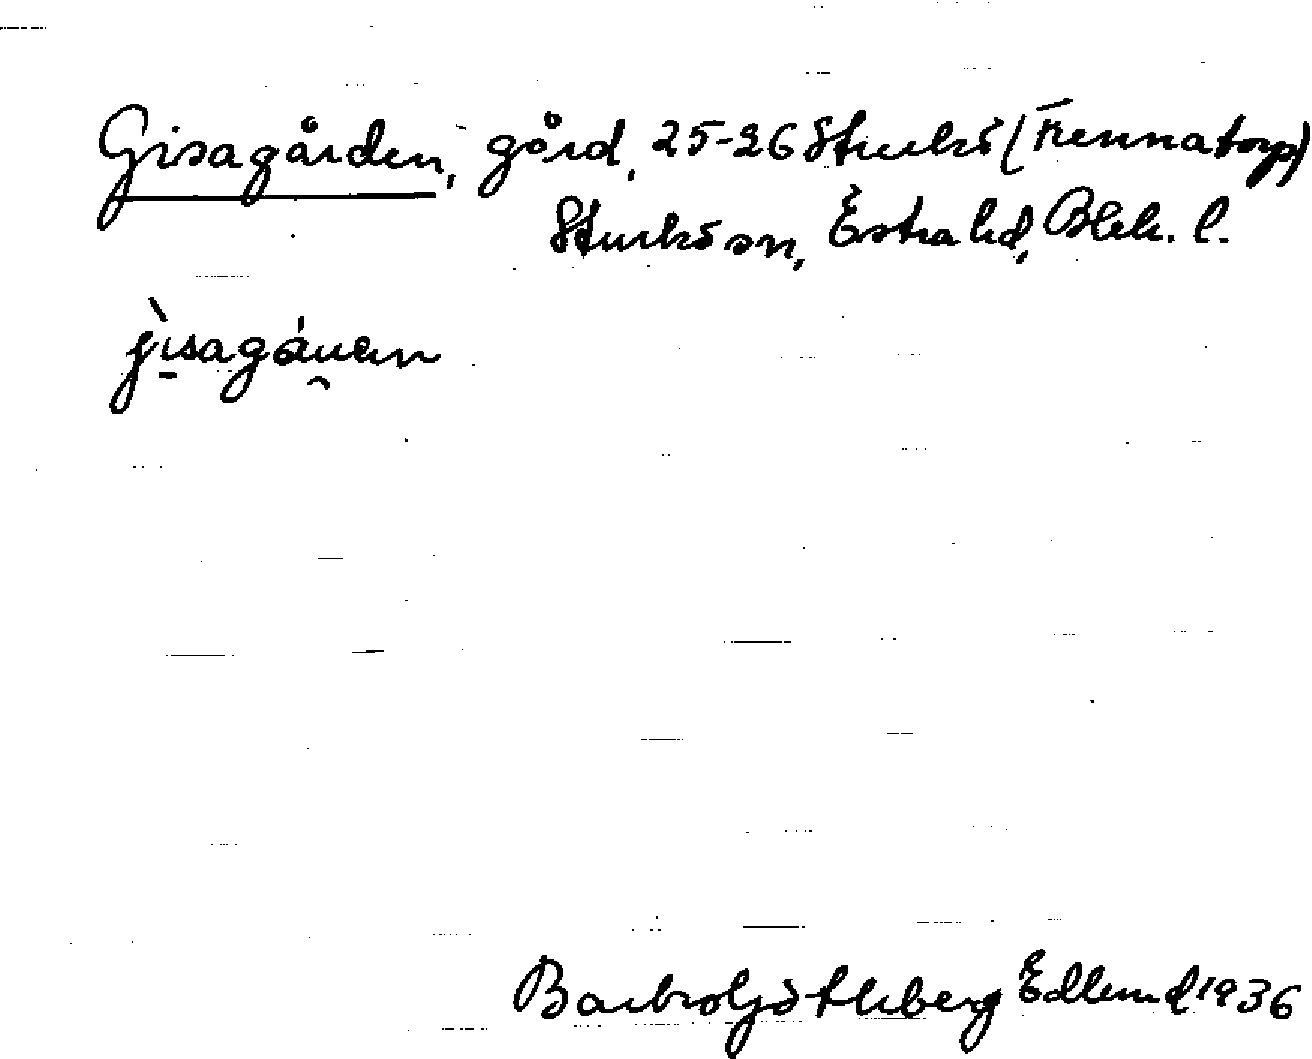 Gisagården, gård, 25-26 Sturkö (Kennatorp)
Sturkö sn, Östra hd, Blek. l.
jisagáuen
Barbro Götheberg Edlund 1936